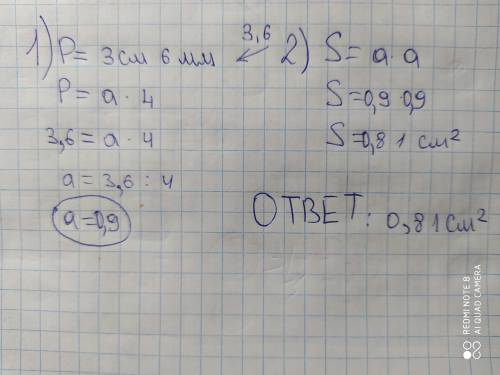 1) P = 3 см 6 мм
3,6
P = a · 4
3,6 = a · 4
a = 3,6 : 4
a = 0,9
2) S = a · a
S = 0,9 0,9
S = 0,81 см²
ОТВЕТ: 0,81 см²
REDMI NOTE 8
AI QUAD CAMERA